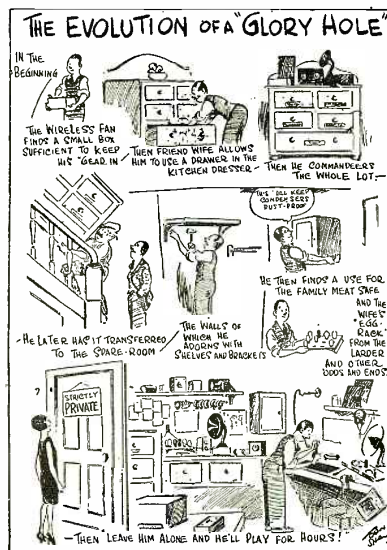 THE EVOLUTION OF A "GLORY HOLE"
IN THE
BEGINNING
THE WIRELESS FAN
FINDS A SMALL BOX
SUFFICIENT TO KEEP
HIS "GEAR IN
THEN FRIEND WIFE ALLOWS
HIM TO USE A DRAWER IN THE
KITCHEN DRESSER—
THEN HE COMMANDEERS
THE WHOLE LOT,—
—HE LATER HAS IT TRANSFERRED
TO THE SPARE-ROOM
THE WALLS OF
WHICH HE
ADORNS WITH
SHELVES AND BRACKETS
THIS'LL KEEP
CONDENSERS
DUST-PROOF
HE THEN FINDS A USE FOR
THE FAMILY MEAT SAFE
AND THE
WIFE'S
"EGG-
RACK"
FROM THE
LARDER
AND OTHER
ODDS AND ENDS
?
STRICTLY
PRIVATE
—THEN LEAVE HIM ALONE AND HE'LL PLAY FOR HOURS!"